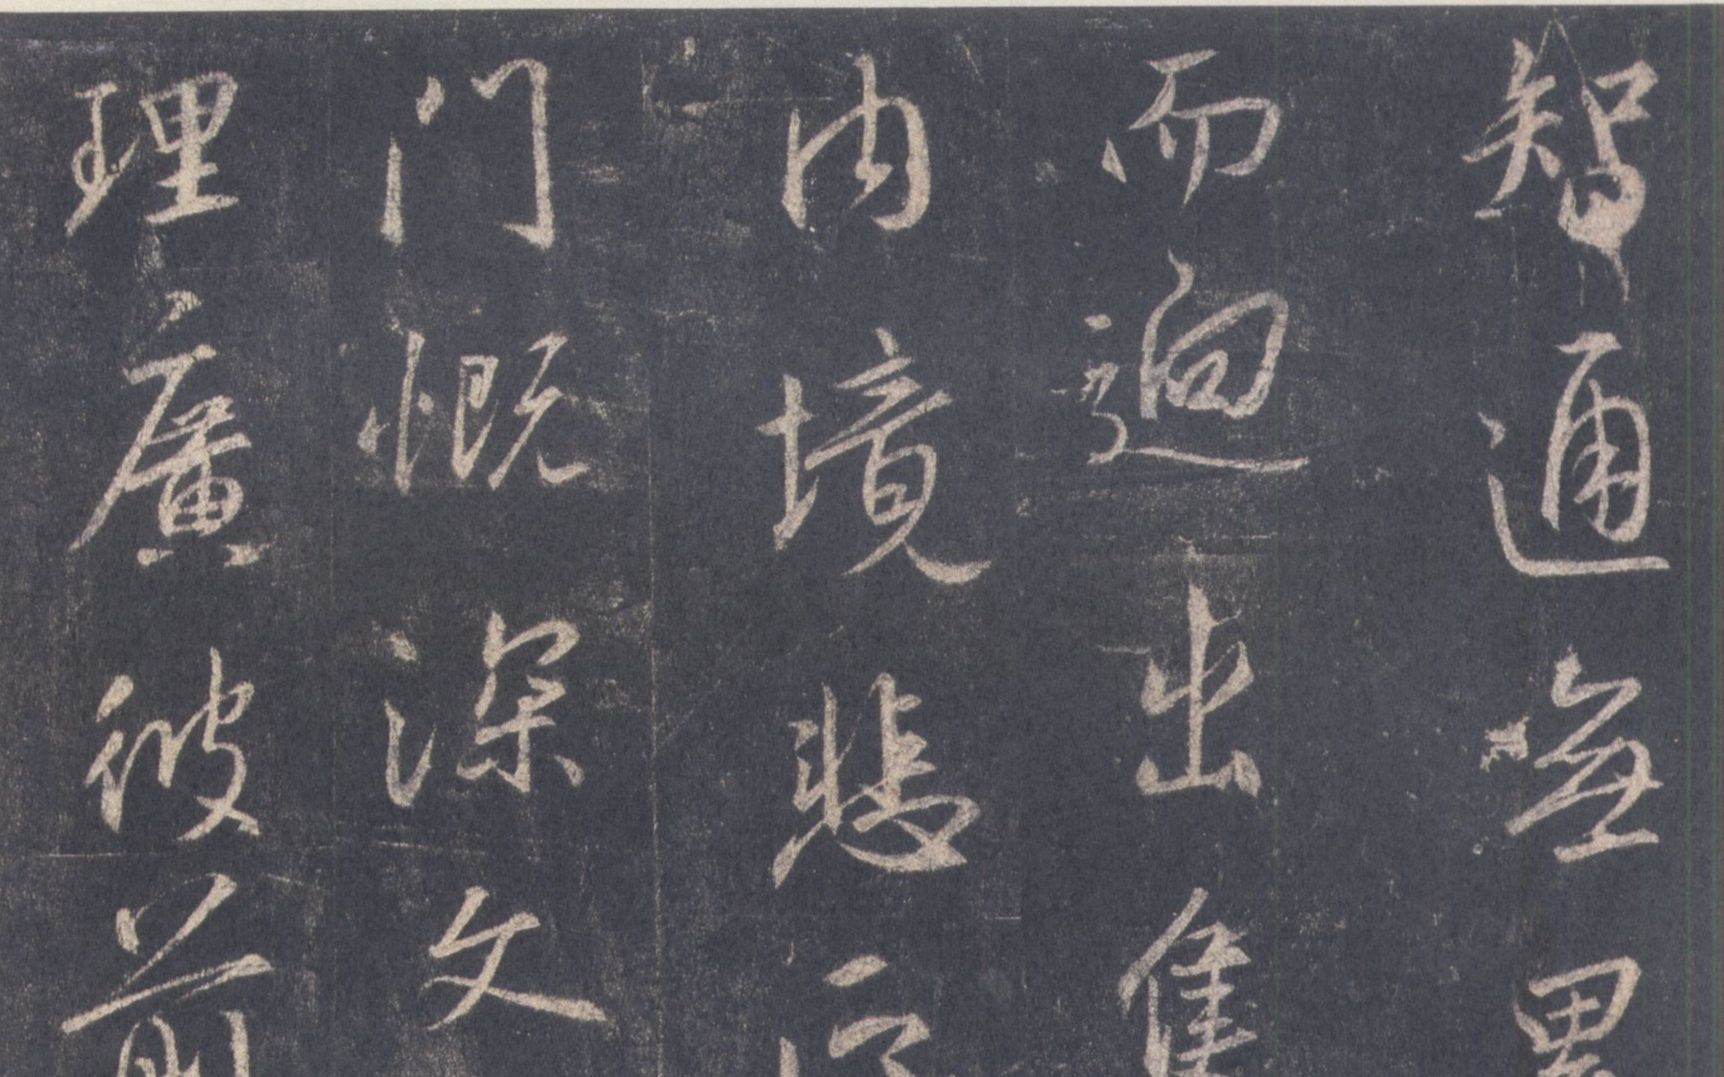 智通無累
而逈出隻
內境悲正
門慨深文
理廣彼前